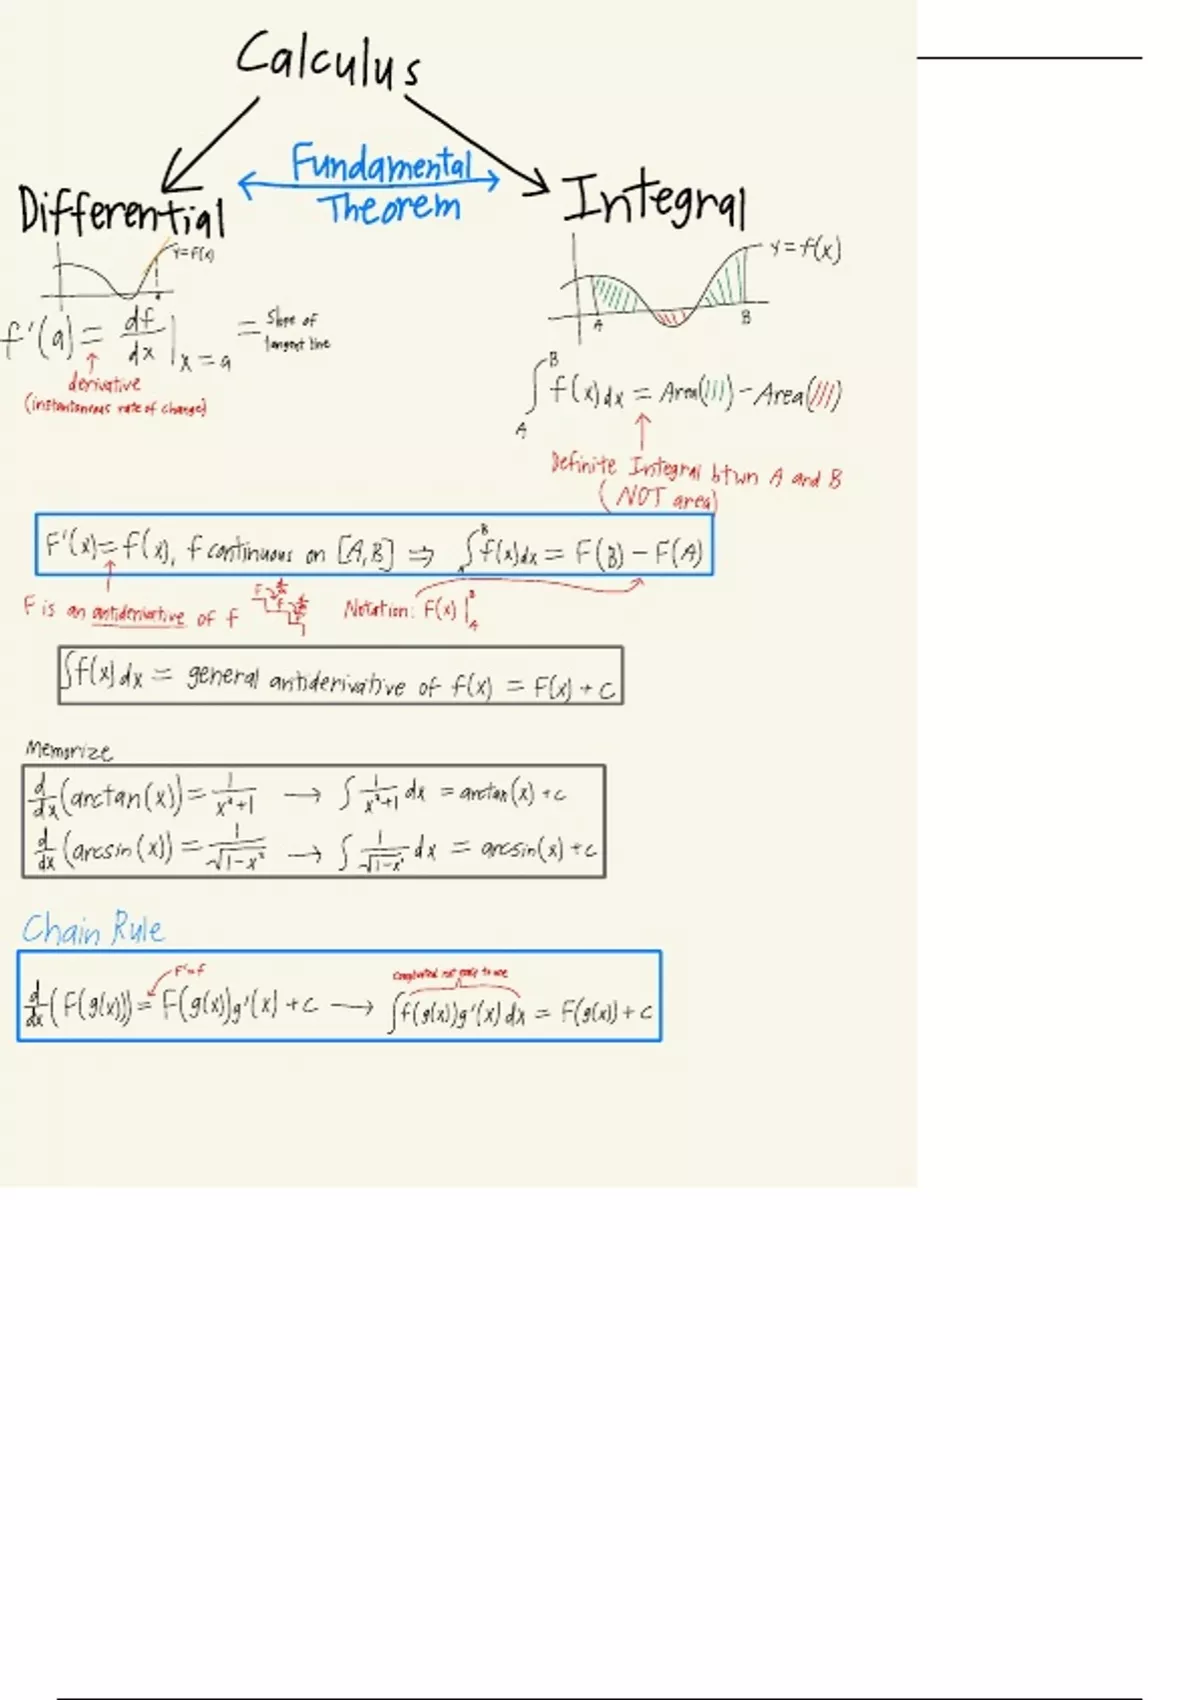 Calculus
Fundamental
Theorem
Differential
Integral
y=f(x)
y=f(x)
A
B
f'(a) = df/dx |x=a = slope of tangent line
derivative
(instantaneous rate of change)
∫_A^B f(x)dx = Area(///) - Area(///)
Definite Integral btwn A and B
(NOT area)
F'(x)=f(x), f continuous on [A,B] ⇒ ∫_A^B f(x)dx = F(B) - F(A)
F is an antiderivative of f
Notation: F(x)|_A^B
∫f(x)dx = general antiderivative of f(x) = F(x)+c
Memorize
d/dx (arctan(x)) = 1/(x²+1) → ∫ 1/(x²+1) dx = arctan(x)+c
d/dx (arcsin(x)) = 1/√(1-x²) → ∫ 1/√(1-x²) dx = arcsin(x)+c
Chain Rule
F'=f
d/dx (F(g(x))) = F(g(x))g'(x)+c → ∫f(g(x))g'(x)dx = F(g(x))+c